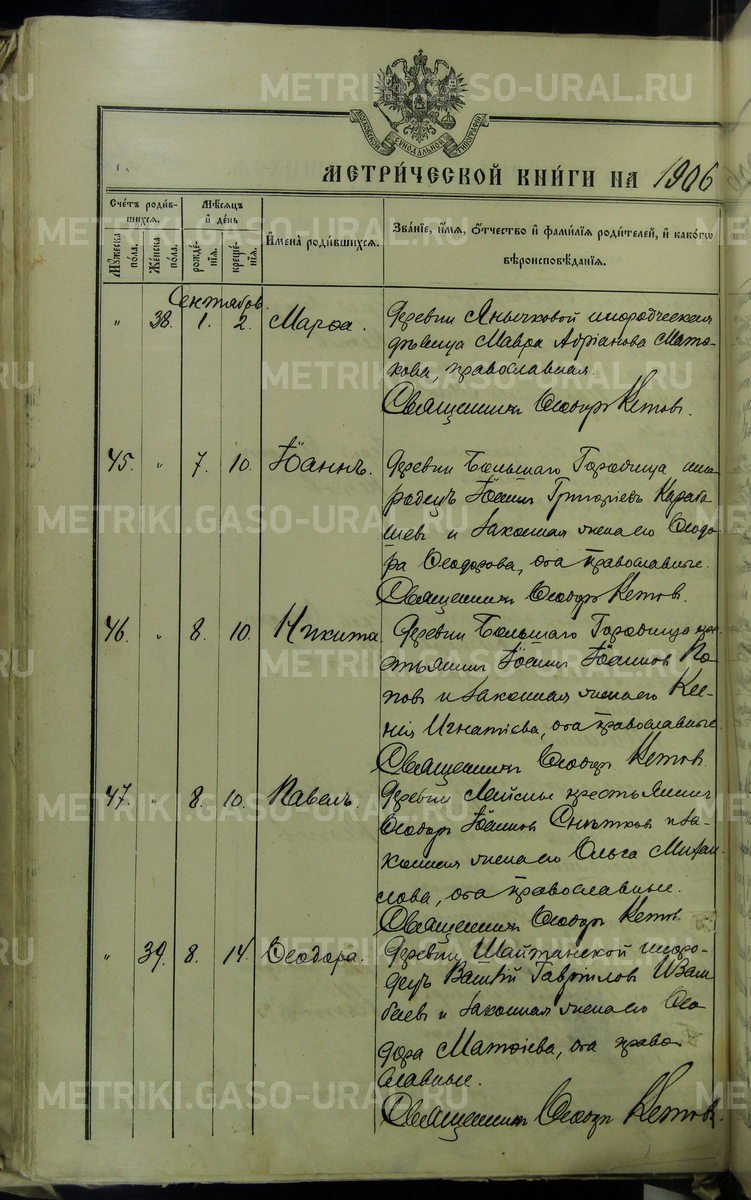 METRIKI.GASO-URAL.RU
МОСКОВСКОЙ СѴНОДАЛЬНОЙ ТИПОГРАФІИ
МЕТРИ́ЧЕСКОЙ КНИ́ГИ НА 1906
Сче́тъ роди́в-
шихся.
Мꙋжеска по́ла.
Же́нска по́ла.
Мѣ́сяцъ
и҆ де́нь
рожде́-
нїѧ.
креще́-
нїѧ.
И҆мена̀ роди́вшихсѧ.
Зва́нїе, и҆́мѧ, ѻ҆́тчество и҆ фами́лїѧ роди́телей, и҆ како́гѡ
вѣроисповѣ́данїѧ.
Сентябрь.
" 38. 1. 2. Марѳа. Деревни Янычковой инородческая
дѣвица Мавра Адріанова Мато-
кова, православная.
Священникъ Ѳеодоръ Кетовъ.
45. " 7. 10. Іоаннъ. Деревни Большаго Городища ино-
родецъ Іоаннъ Григоріевъ Караба-
шевъ и законная жена его Ѳеодо-
ра Ѳеодорова, оба православные.
Священникъ Ѳеодоръ Кетовъ.
46. " 8. 10. Никита Деревни Большаго Городища кре-
стьянинъ Іоаннъ Іоанновъ По-
повъ и законная жена его Ксе-
нія Игнатіева, оба православные.
Священникъ Ѳеодоръ Кетовъ.
47. " 8. 10. Павелъ. Деревни крестьянинъ
Ѳеодоръ Іоанновъ Снѣтковъ и за-
конная жена его Ольга Михаи-
лова, оба православные.
Священникъ Ѳеодоръ Кетовъ
" 39. 8. 14. Ѳеодора. Деревни Шайтанской иноро-
децъ Гавріиловъ
и законная жена его Ѳео-
дора Матѳіева, оба право-
славные.
Священникъ Ѳеодоръ Кетовъ.